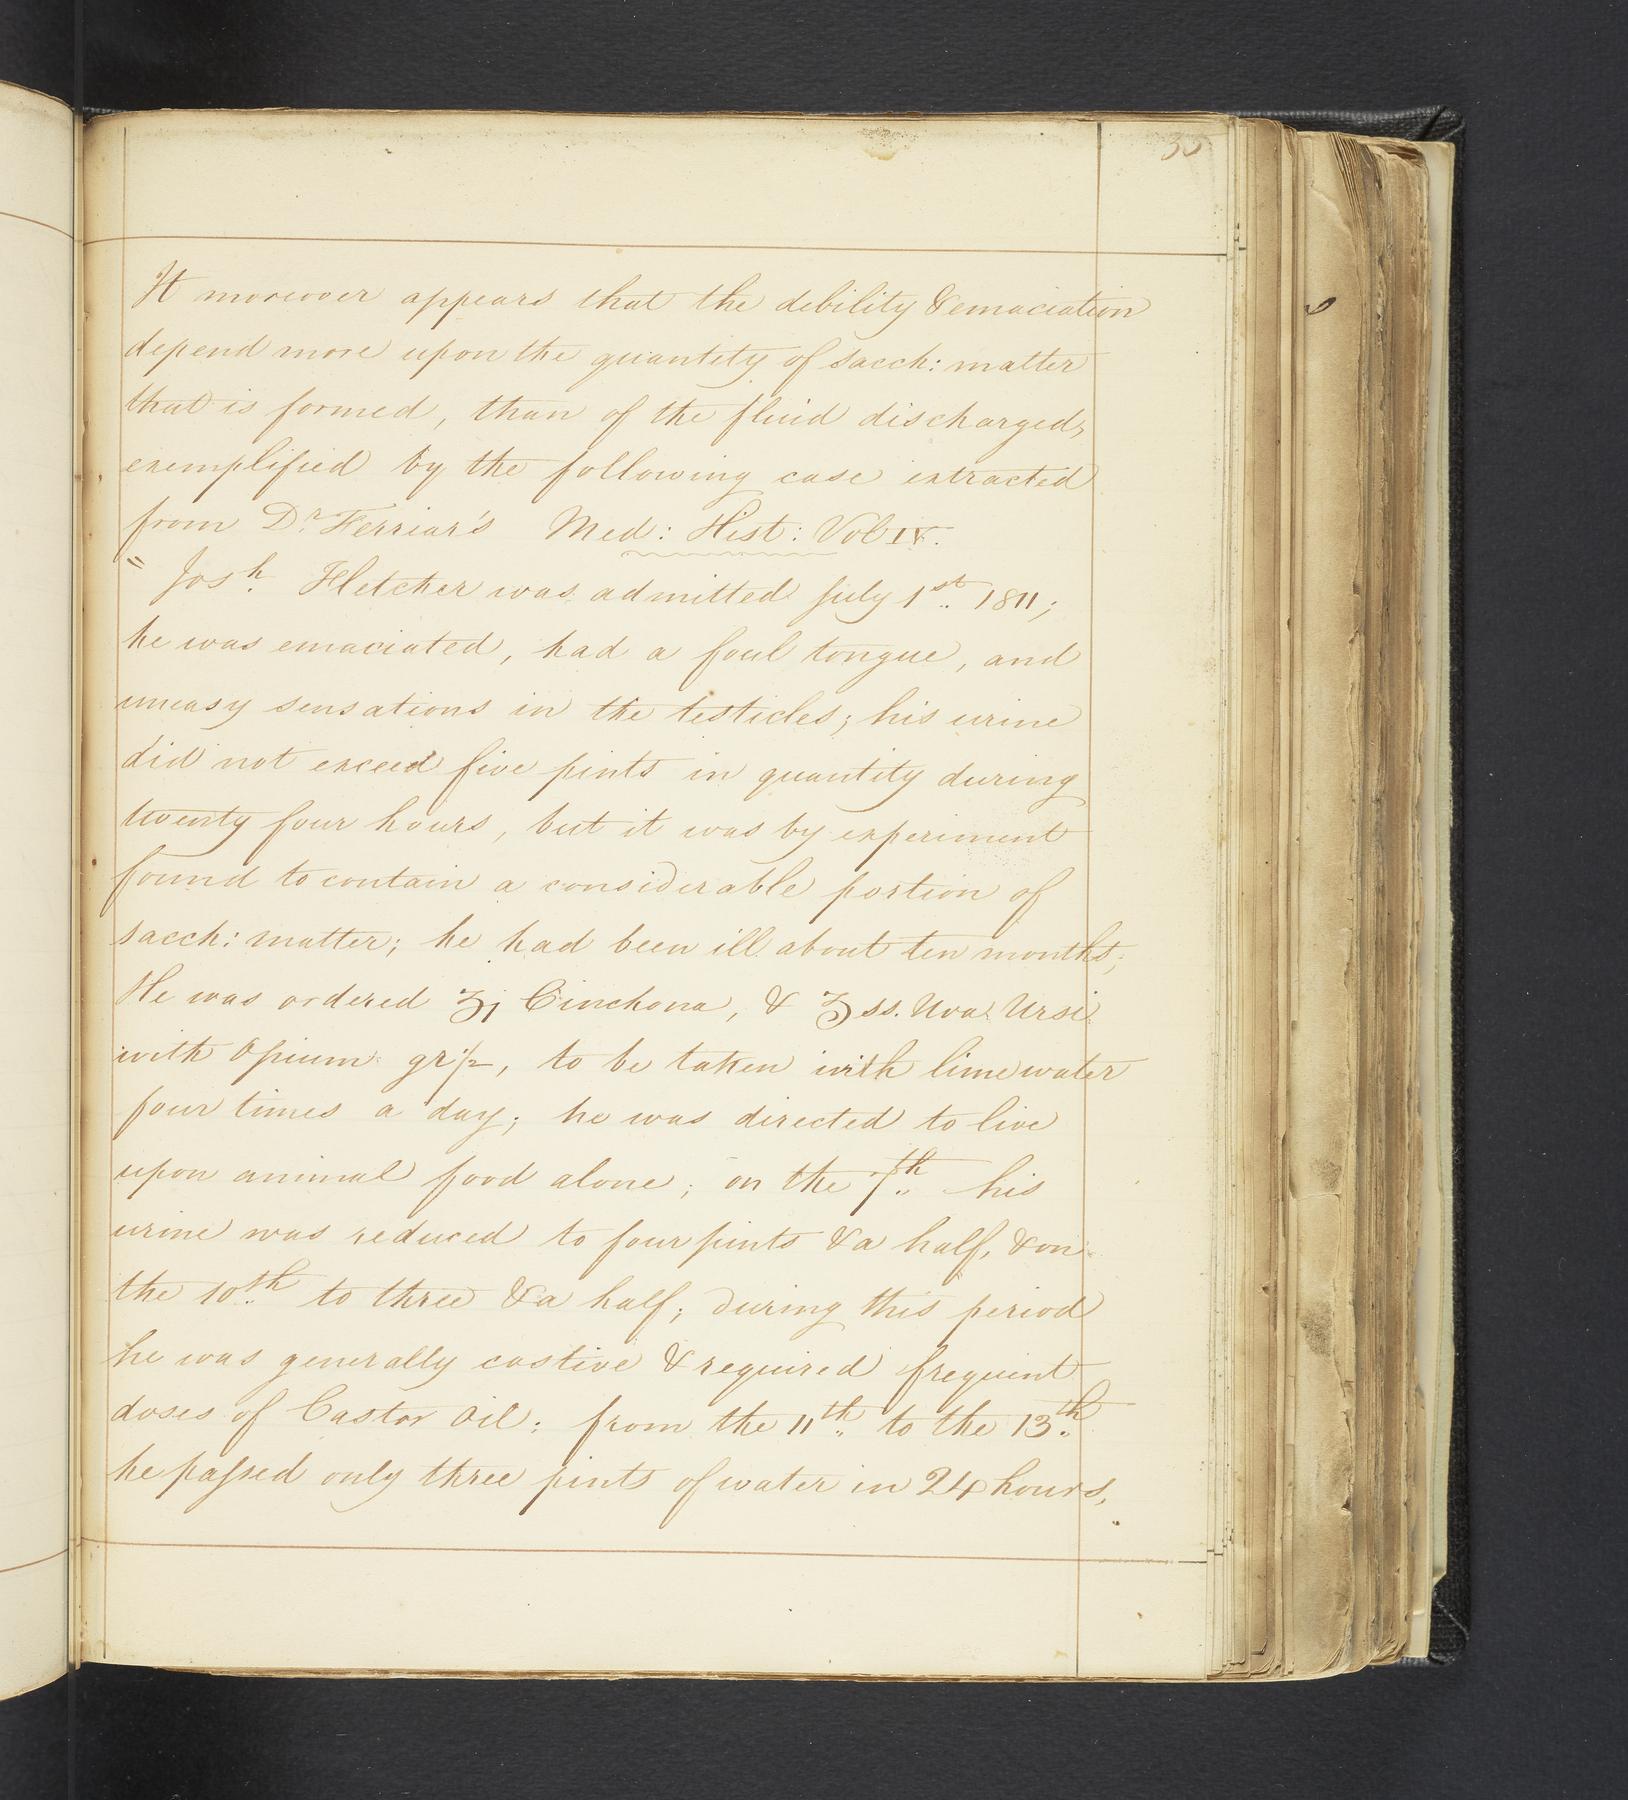 35
It moreover appears that the debility & emaciation
depend more upon the quantity of sacch: matter
that is formed, than of the fluid discharged,
exemplified by the following case extracted
from Dr. Ferriar's Med: Hist: Vol IV.
" Josh. Fletcher was admitted July 1st. 1811;
he was emaciated, had a foul tongue, and
uneasy sensations in the testicles; his urine
did not exceed five pints in quantity during
twenty four hours, but it was by experiment
found to contain a considerable portion of
sacch: matter; he had been ill about ten months;
He was ordered ʒj Cinchona, & ʒss. Uva Ursi
with Opium gr ½, to be taken with lime water
four times a day; he was directed to live
upon animal food alone; on the 7th. his
urine was reduced to four pints & a half, & on
the 10th. to three & a half; during this period
he was generally costive & required frequent
doses of Castor Oil: from the 11th. to the 13th.
he passed only three pints of water in 24 hours,